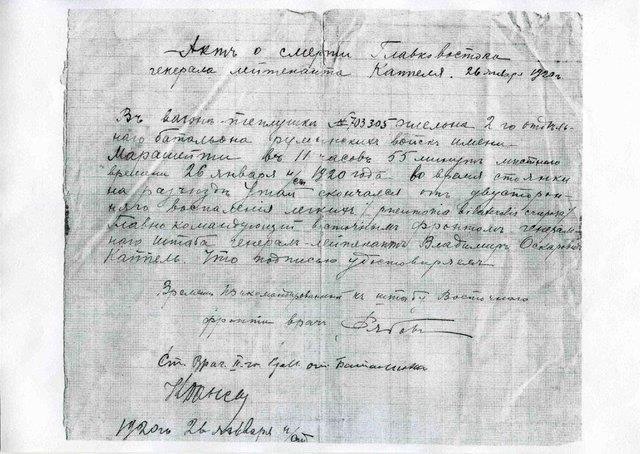 Актъ о смерти Главковостока
генерала лейтенанта Каппеля. 26 января 1920г.
Въ вагон-теплушка № 703305 эшелона 2го отдель-
наго батальона румынских войск имени
Марашети въ 11 часов 55 минут местного
времени 26 января н/ст 1920 года во время стоянки
на разъезде Утай скончался от двусторон-
няго воспаления легких /
Главнокомандующий восточным фронтом генераль-
ного штаба генерал-лейтенантъ Владимир Оскарович
Каппель. Что подписью удостоверяем
Времен. Прикомандированный к штабу Восточного
фронта врач
Ст. Врач II-го от. Баталиона
1920г 26 января н/ст